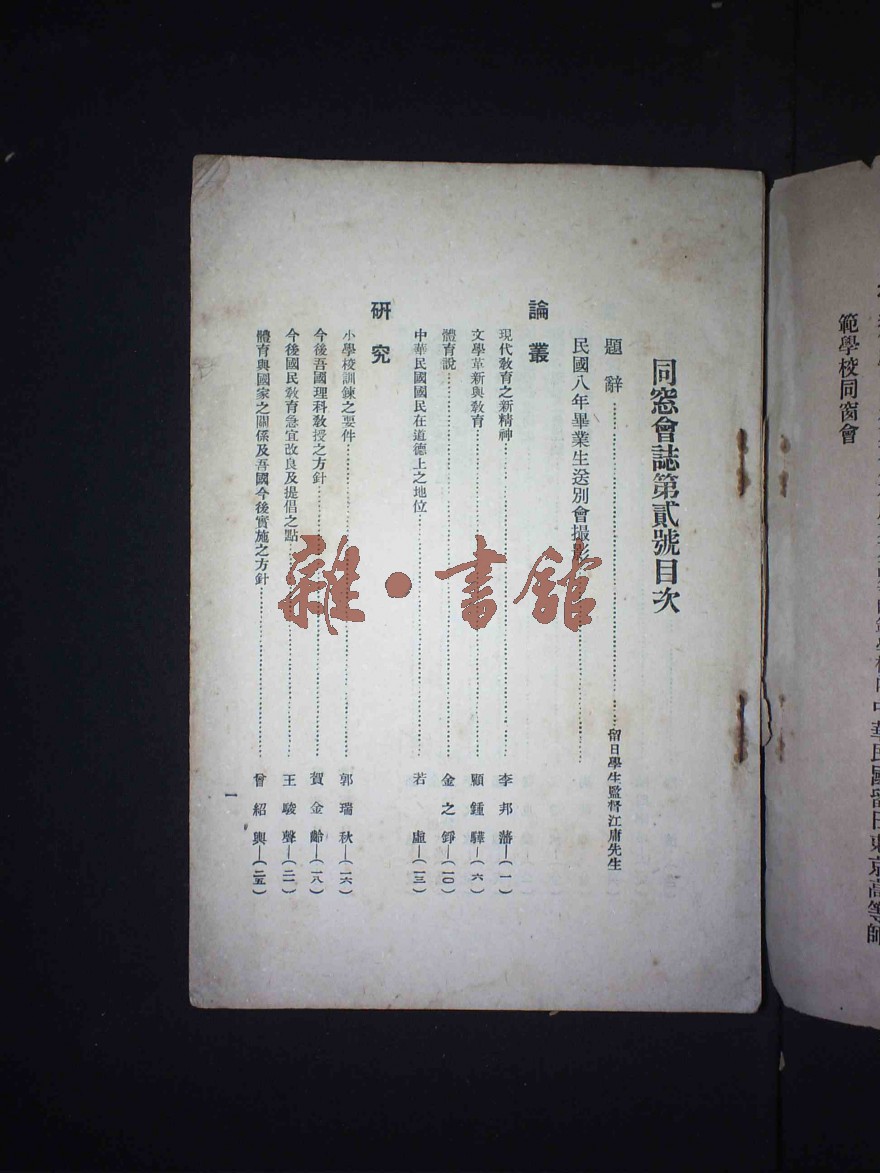 範學校同窗會
同窓會誌第貳號目次
題辭……留日學生監督江庸先生
民國八年畢業生送別會撮影……
論叢
現代教育之新精神……李邦藩—(一)
文學革新與教育……顧鍾驊—(六)
體育說……金之錚—(一〇)
中華民國國民在道德上之地位……若虛—(一三)
研究
小學校訓鍊之要件……郭瑞秋—(一六)
今後吾國理科教授之方針……賀金齡—(一八)
今後國民教育急宜改良及提倡之點……王駿聲—(二一)
體育與國家之關係及吾國今後實施之方針……曾紹輿—(二五)
一
雜·書館